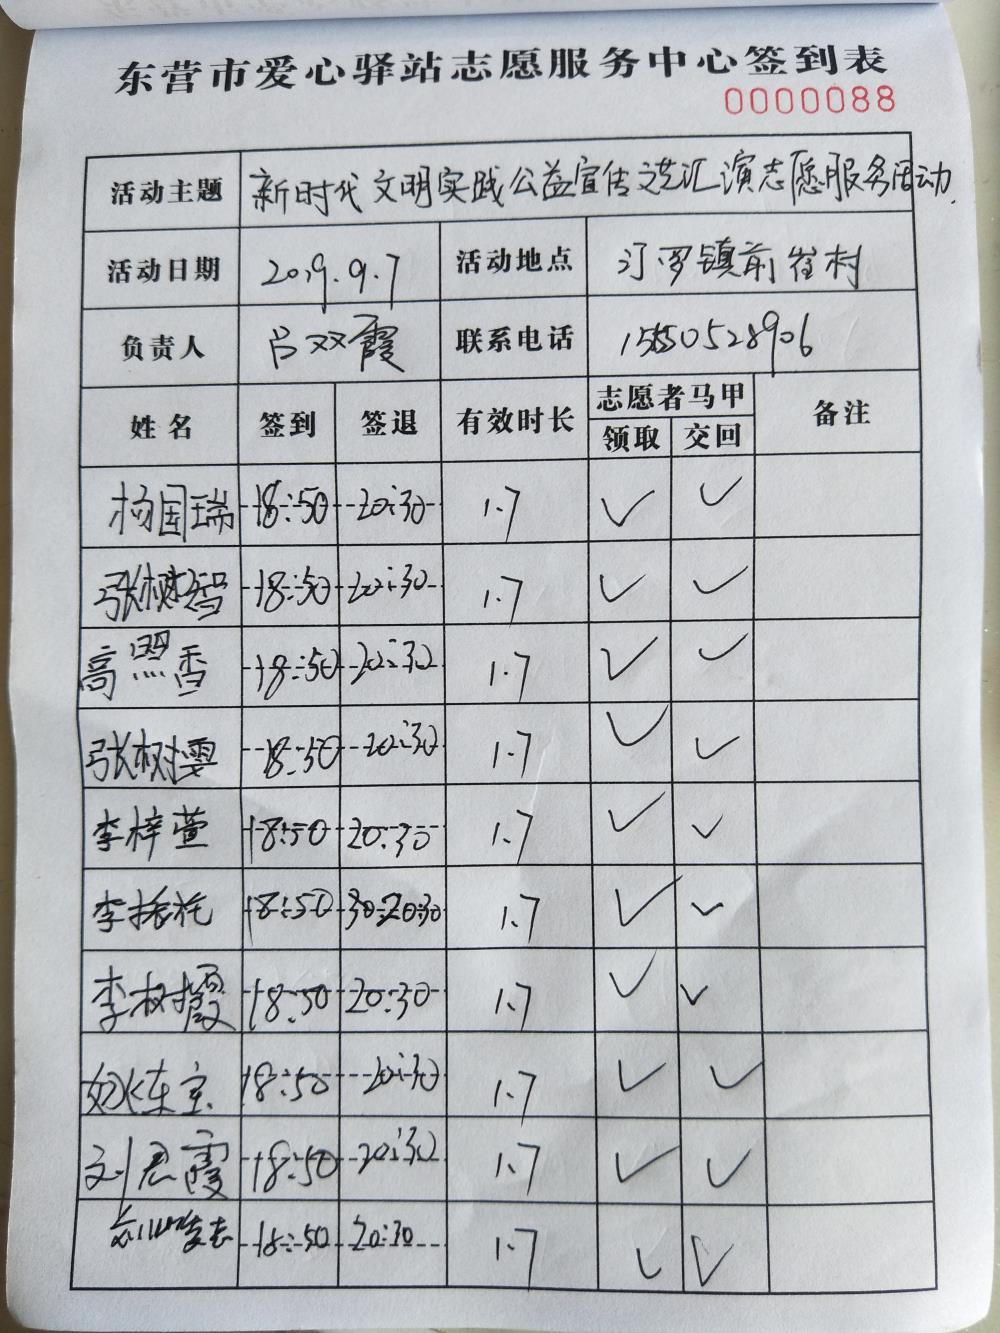 东营市爱心驿站志愿服务中心签到表
0000088
活动主题 新时代文明实践公益宣传文艺汇演志愿服务活动.
活动日期 2019.9.7 活动地点 汀罗镇前崔村
负责人 吕双霞 联系电话 15550528906
姓名 签到 签退 有效时长 志愿者马甲 备注
领取 交回
杨国瑞 18:50 20:30 1.7 ✓ ✓
张树智 18:50 20:30 1.7 ✓ ✓
高照香 18:50 20:30 1.7 ✓ ✓
张树雯 18:50 20:30 1.7 ✓ ✓
李梓萱 18:50 20:30 1.7 ✓ ✓
李振 18:50 20:30 1.7 ✓ ✓
李树霞 18:50 20:30 1.7 ✓ ✓
18:50 20:30 1.7 ✓ ✓
刘君霞 18:50 20:30 1.7 ✓ ✓
18:50 20:30 1.7 ✓ ✓